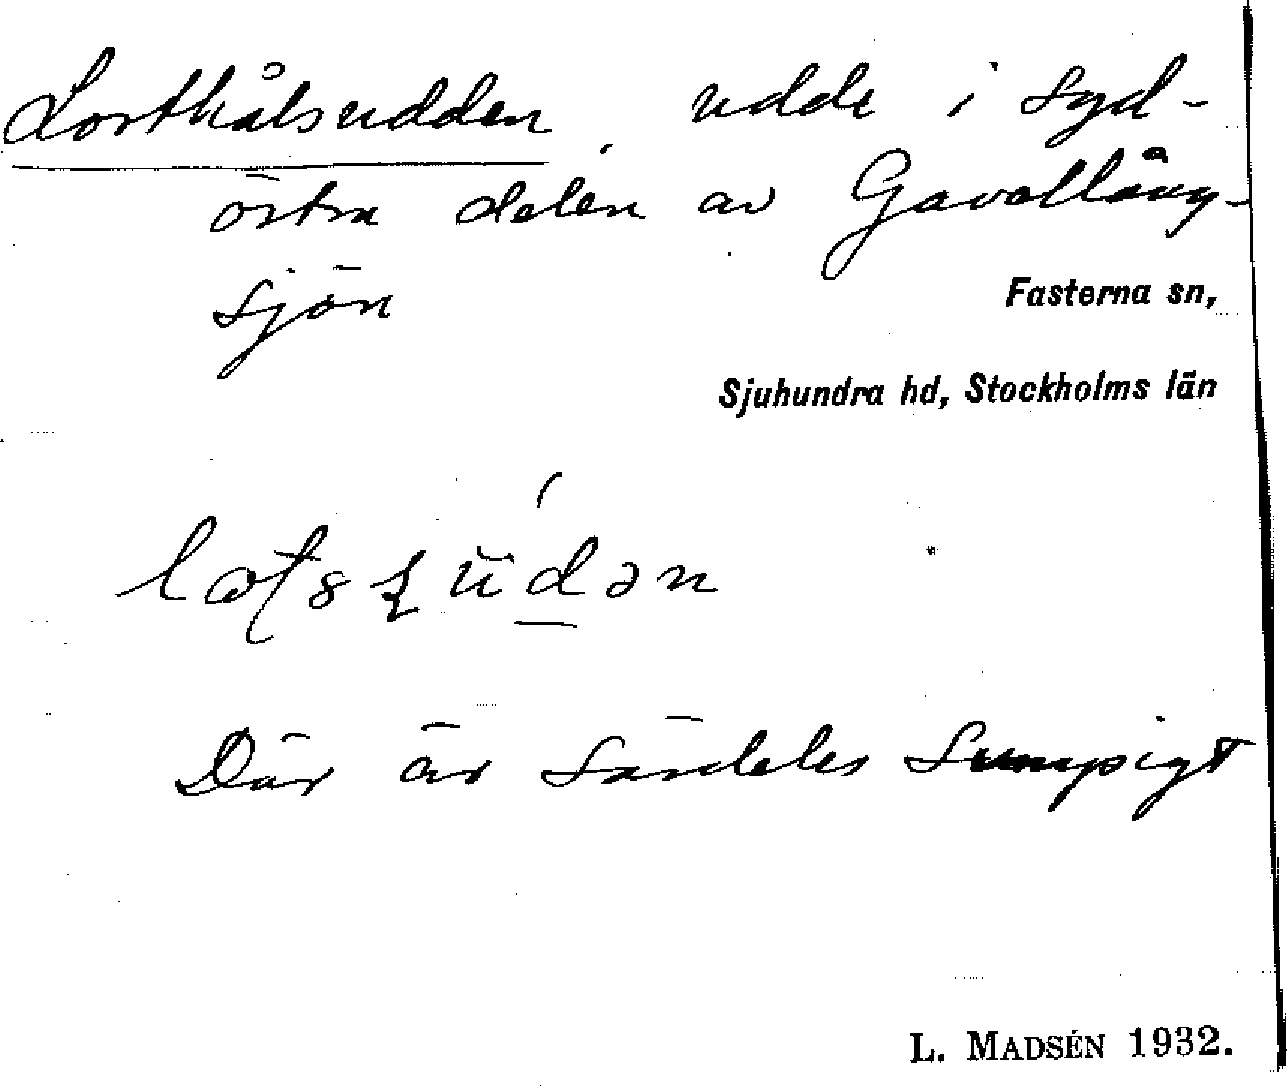 Lorthålsudden, udde i syd-
östra delen av Gavellång-
sjön
Fasterna sn,
Sjuhundra hd, Stockholms län
Där är särdeles sumpigt
L. MADSÉN 1932.